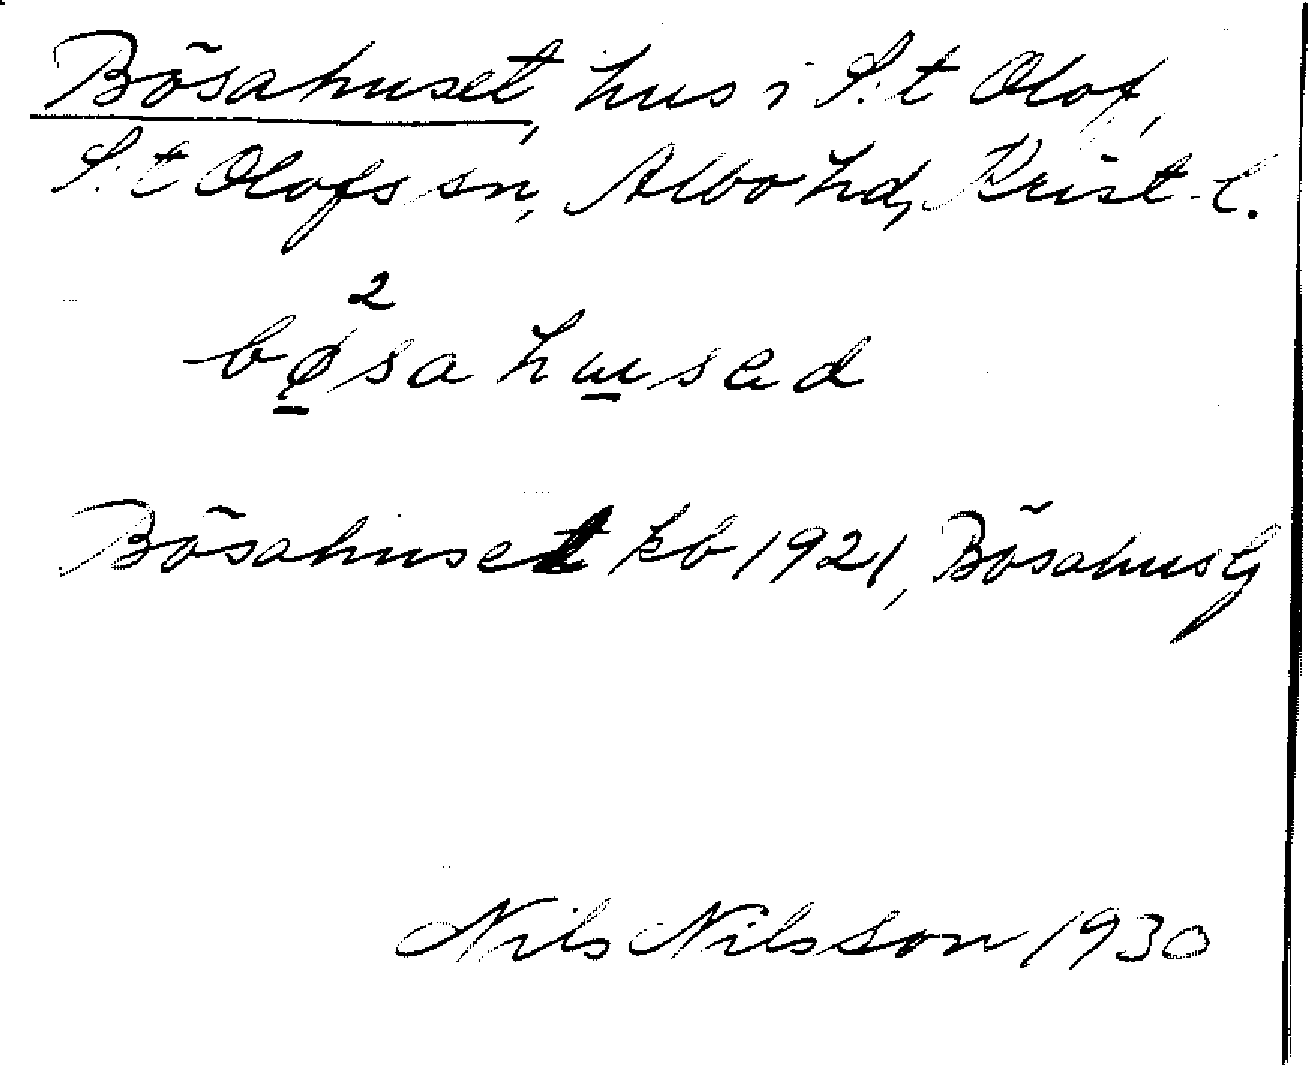 Bösahuset, hus i S:t Olof,
S:t Olofs sn, Albo hd, Krist. l.
2
bø̱sahu̱sed
Bösahuset kb 1921, Bösahus G
Nils Nilsson 1930